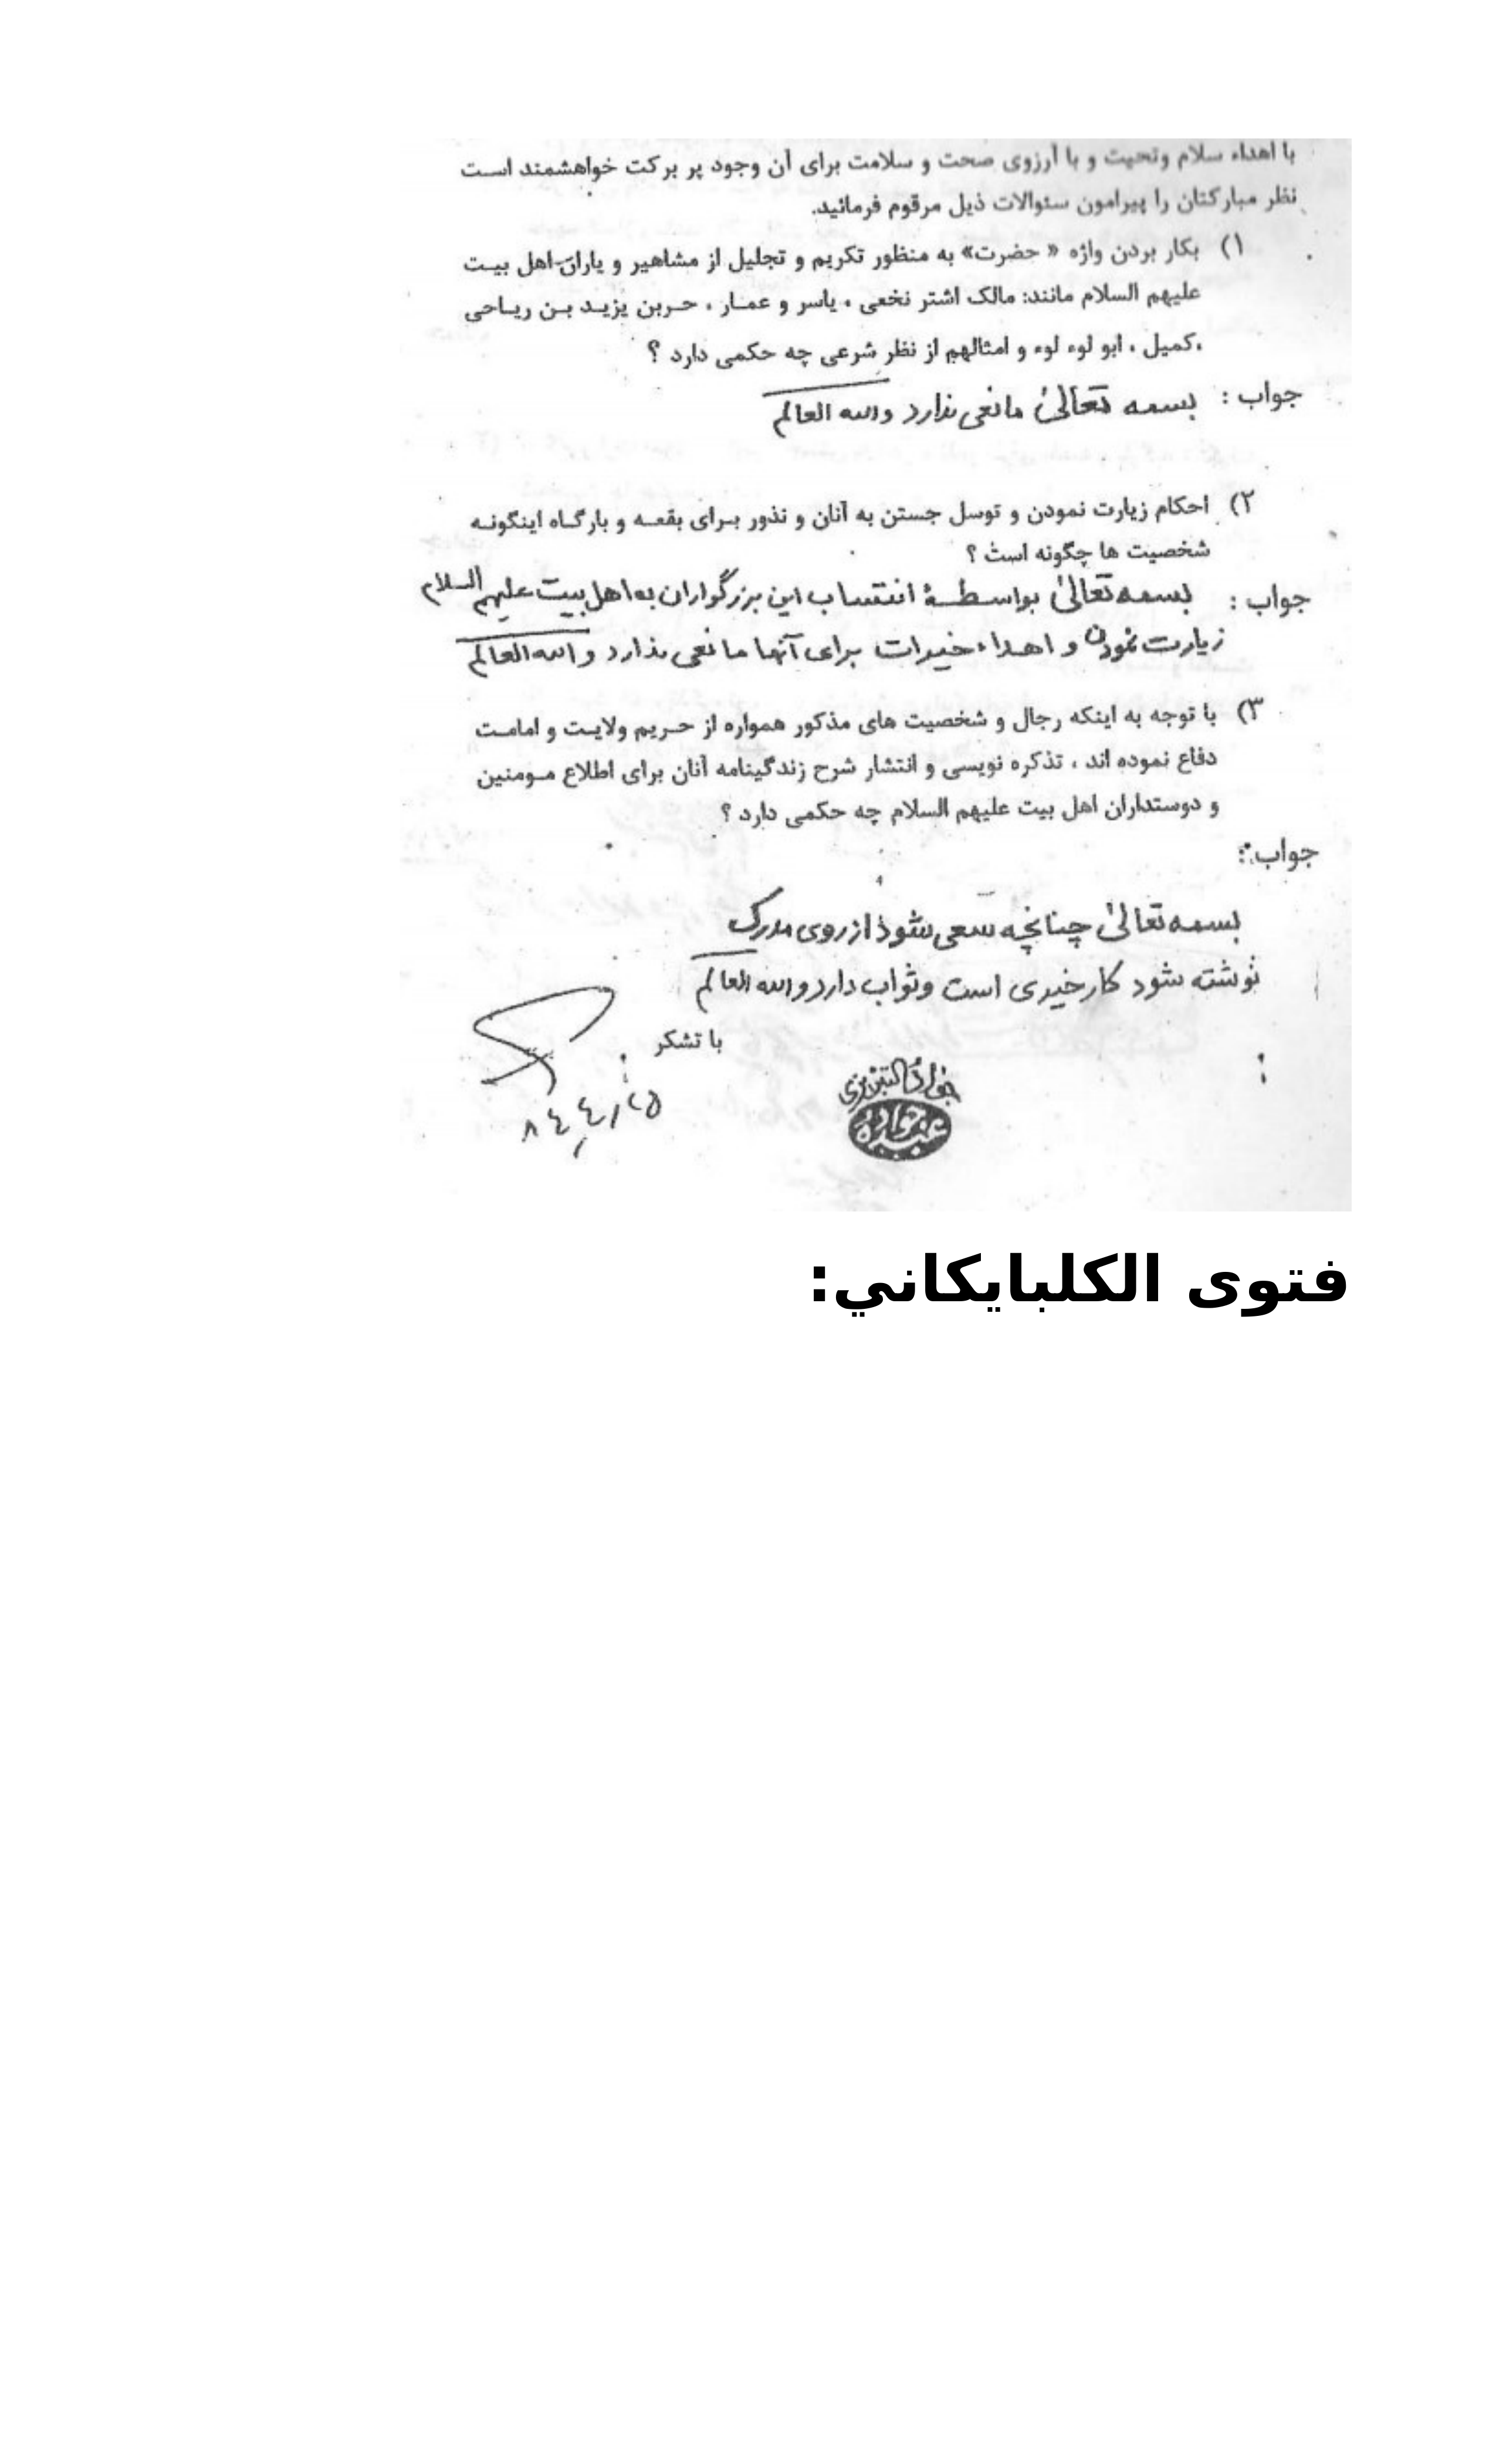 با اهداء سلام وتحیت و با آرزوی صحت و سلامت برای آن وجود پر برکت خواهشمند است
نظر مبارکتان را پیرامون سئوالات ذیل مرقوم فرمائید.
۱) بکار بردن واژه « حضرت» به منظور تکریم و تجلیل از مشاهیر و یاران اهل بیت
علیهم السلام مانند: مالک اشتر نخعی ، یاسر و عمار ، حربن یزید بن ریاحی
،کمیل ، ابو لوء لوء و امثالهم از نظر شرعی چه حکمی دارد ؟
جواب : بسمه تعالیٰ مانعی ندارد والله العالم
۲) احکام زیارت نمودن و توسل جستن به آنان و نذور برای بقعه و بارگاه اینگونه
شخصیت ها چگونه است ؟
جواب : بسمه تعالیٰ بواسطهٔ انتساب این بزرگواران به اهل بیت علیهم السلام
زیارت نمودن و اهداء خیرات برای آنها مانعی ندارد والله العالم
۳) با توجه به اینکه رجال و شخصیت های مذکور همواره از حریم ولایت و امامت
دفاع نموده اند ، تذکره نویسی و انتشار شرح زندگینامه آنان برای اطلاع مومنین
و دوستداران اهل بیت علیهم السلام چه حکمی دارد ؟
جواب :
بسمه تعالیٰ چنانچه سعی شود از روی مدرک
نوشته شود کار خیری است وثواب دارد والله العالم
با تشکر
جواد التبریزی
فتوى الكلبايكاني: